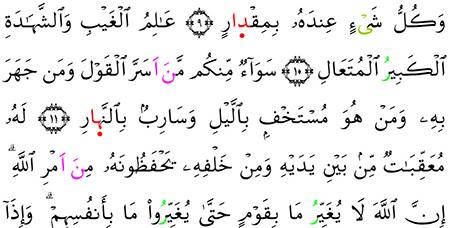 وَكُلُّ شَےْءٍ عِندَهُۥ بِمِقْدٰارٍ ۝٩ عَٰلِمُ اُ۬لْغَيْبِ وَالشَّهَٰدَةِ
اِ۬لْكَبِيرُ اُ۬لْمُتَعَالِ ۝١٠ سَوَآءٞ مِّنكُم مَّنَ اَسَرَّ اَ۬لْقَوْلَ وَمَن جَهَرَ
بِهِۦ وَمَنْ هُوَ مُسْتَخْفِۢ بِالَّيْلِ وَسَارِبُۢ بِالنَّه۪ارِ ۝١١ لَهُۥ
مُعَقِّبَٰتٞ مِّنۢ بَيْنِ يَدَيْهِ وَمِنْ خَلْفِهِۦ يَحْفَظُونَهُۥ مِنَ اَمْرِ اِ۬للَّهِۖ
إِنَّ اَ۬للَّهَ لَا يُغَيِّرُ مَا بِقَوْمٍ حَتَّىٰ يُغَيِّرُواْ مَا بِأَنفُسِهِمْۖ وَإِذَآ